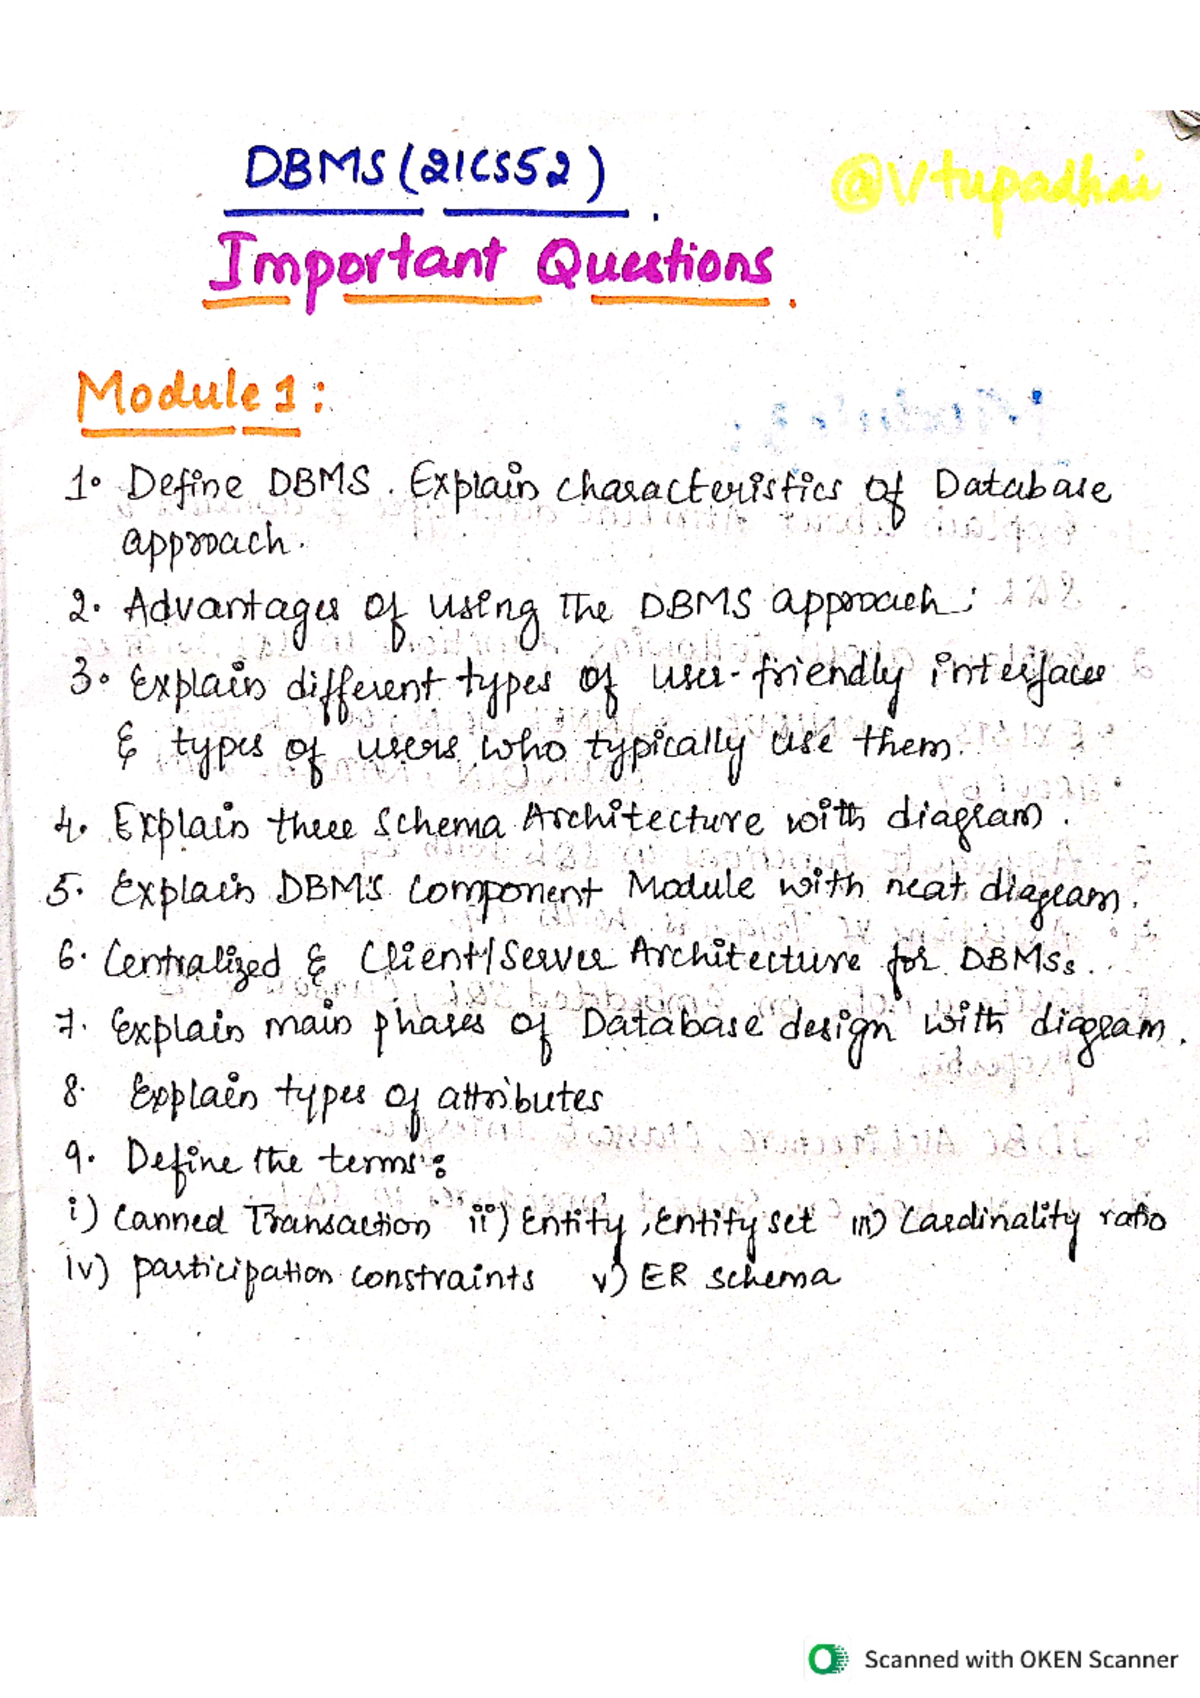 DBMS (21CS52)
@Vtupadhai
Important Questions.
Module 1:
1. Define DBMS. Explain characteristics of Database
approach.
2. Advantages of using the DBMS approach:
3. Explain different types of user-friendly interfaces
& types of users who typically use them.
4. Explain three schema Architecture with diagram.
5. Explain DBMS component Module with neat diagram.
6. Centralized & Client/Server Architecture for DBMSs.
7. Explain main phases of Database design with diagram.
8. Explain types of attributes
9. Define the terms:
i) Canned Transaction ii) Entity, Entity set iii) Cardinality ratio
iv) participation constraints v) ER schema
Scanned with OKEN Scanner